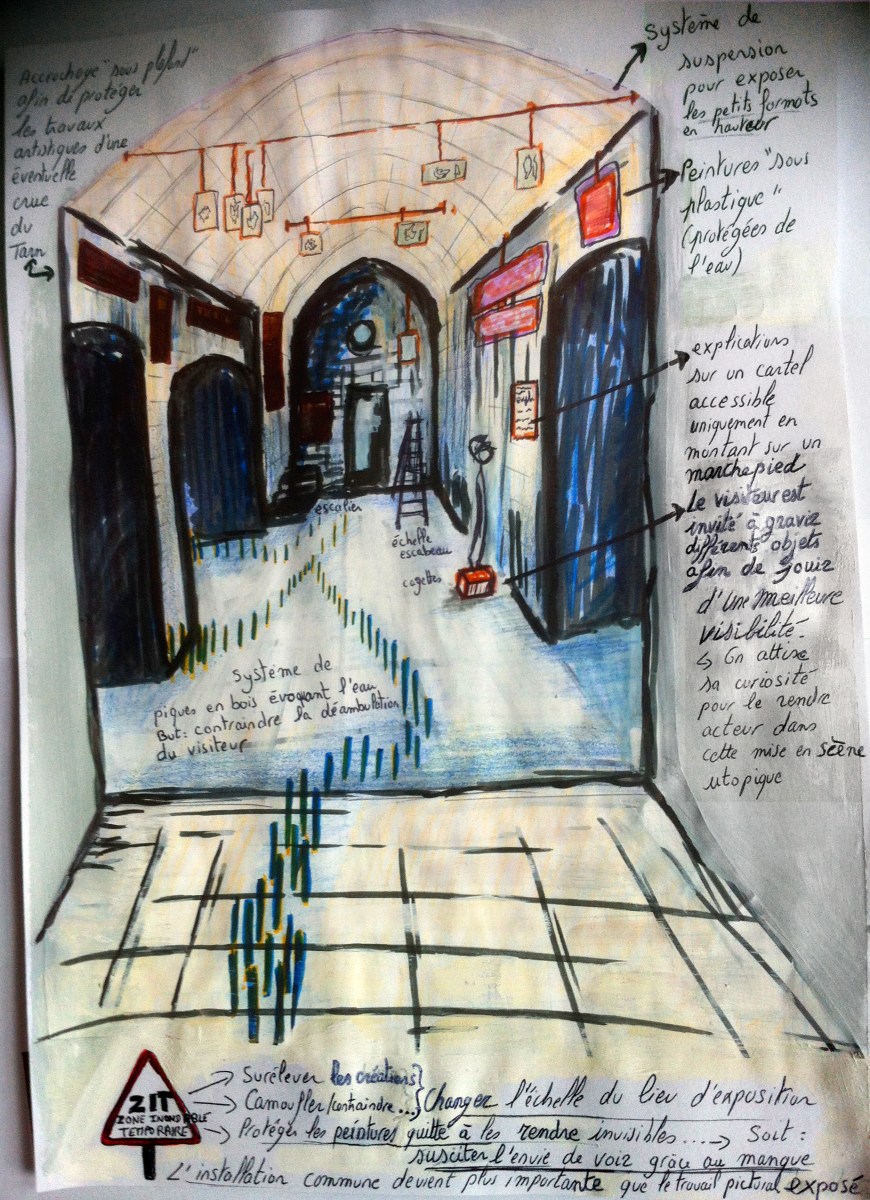 Accrochage "sous plafond"
afin de protéger
les travaux
artistiques d'une
éventuelle
crue
du
Tarn
Système de
suspension
pour exposer
les petits formats
en hauteur
Peintures "sous
plastique"
(protégées de
l'eau)
explications
sur un cartel
accessible
uniquement en
montant sur un
marchepied
Le visiteur est
invité à gravir
différents objets
afin de jouir
d'une meilleure
visibilité.
↳ On attise
sa curiosité
pour le rendre
acteur dans
cette mise en scène
utopique
escalier
échelle
escabeau
cagettes
Système de
piques en bois évoquant l'eau
But: contraindre la déambulation
du visiteur
ZIT
ZONE INONDABLE
TEMPORAIRE
→ Surélever les créations
→ Camoufler/contraindre...
} Changer l'échelle du lieu d'exposition
→ Protéger les peintures quitte à les rendre invisibles....→ Soit :
susciter l'envie de voir grâce au manque
L'installation commune devient plus importante que le travail pictural exposé